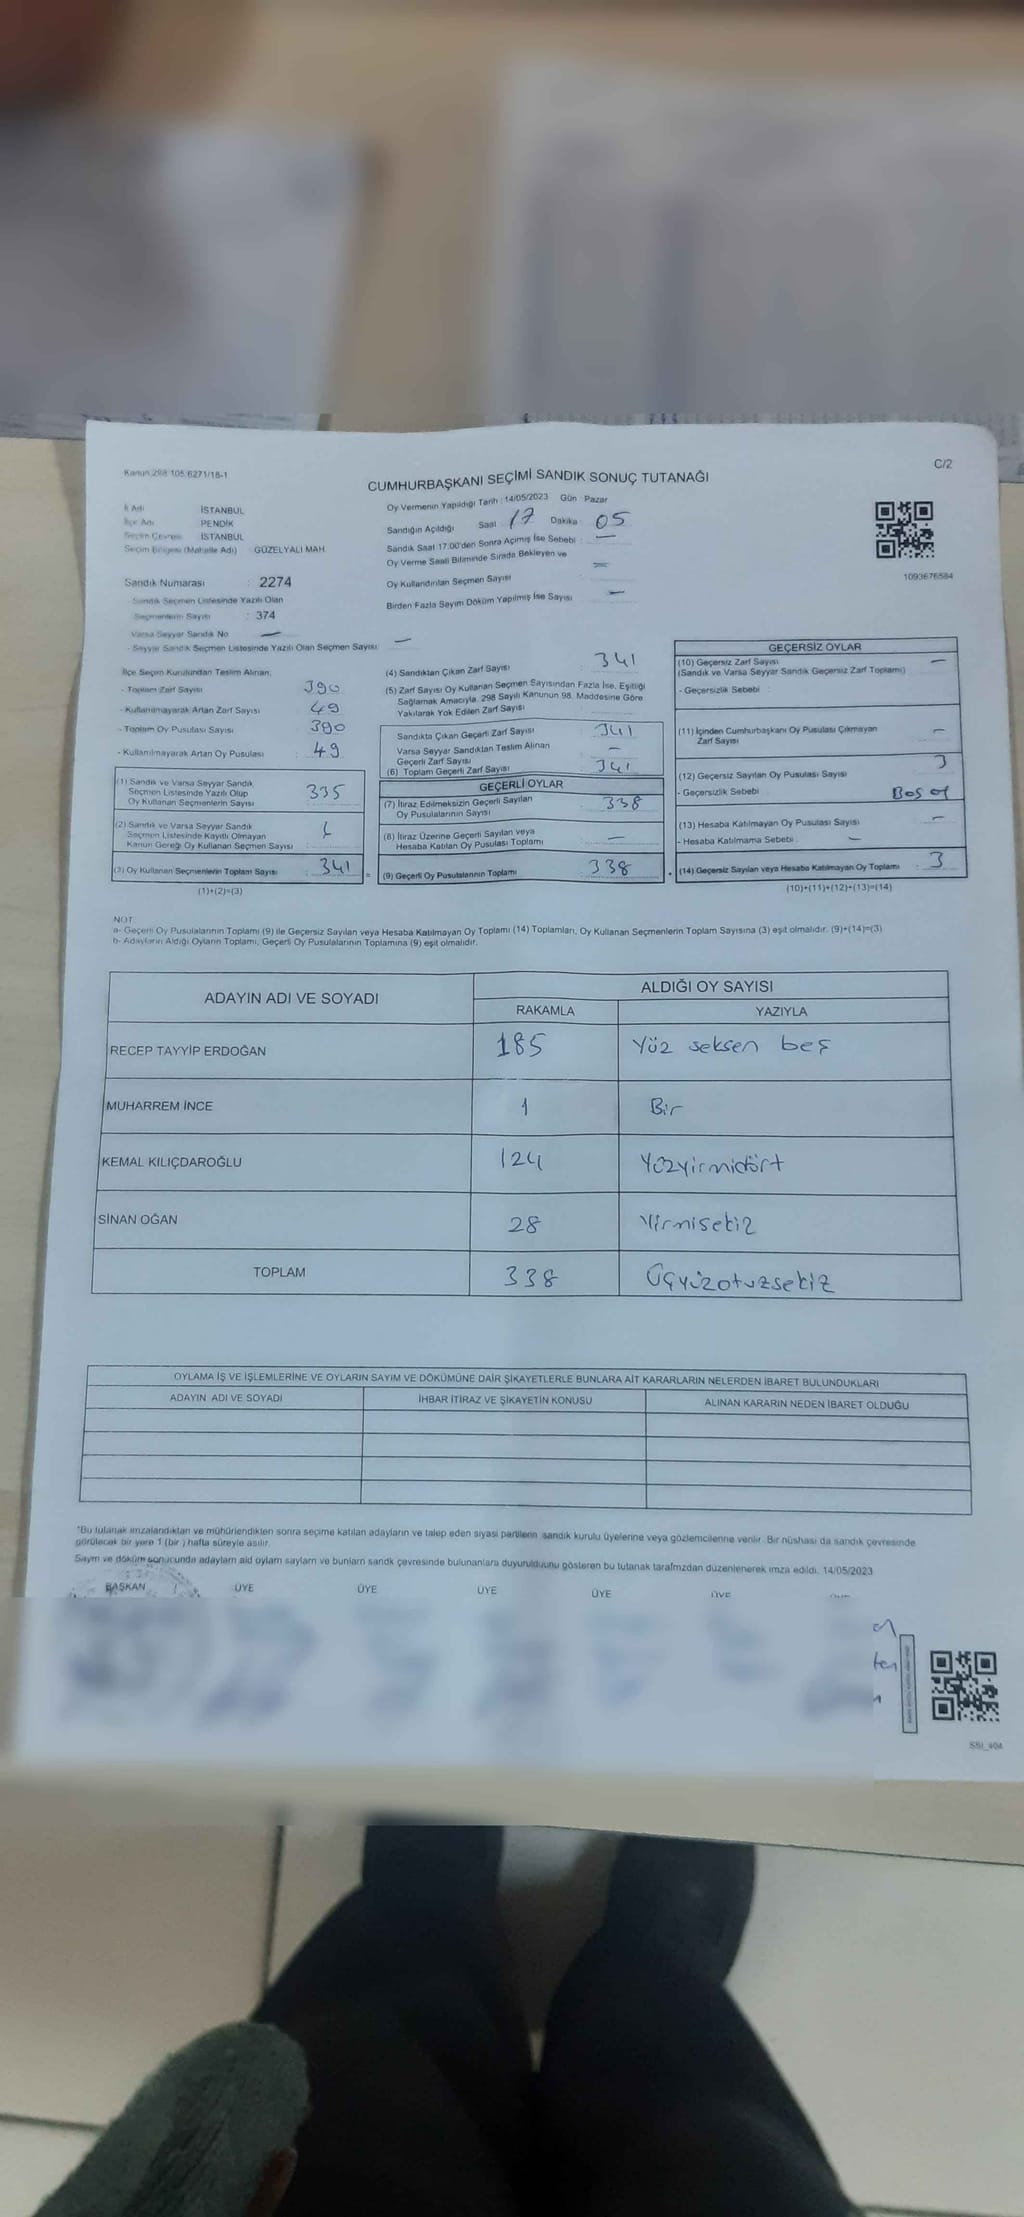 Kanun:298 105 6271/18-1
C/2
CUMHURBAŞKANI SEÇİMİ SANDIK SONUÇ TUTANAĞI
İl Adı İSTANBUL
İlçe Adı PENDİK
Seçim Çevresi İSTANBUL
Seçim Bölgesi (Mahalle Adı) GÜZELYALI MAH.
Sandık Numarası : 2274
Sandık Seçmen Listesinde Yazılı Olan
Seçmenlerin Sayısı : 374
Varsa Seyyar Sandık No —
- Seyyar Sandık Seçmen Listesinde Yazılı Olan Seçmen Sayısı: —
Oy Vermenin Yapıldığı Tarih : 14/05/2023 Gün Pazar
Sandığın Açıldığı Saat : 17 Dakika : 05
Sandık Saat 17:00'den Sonra Açılmış İse Sebebi : —
Oy Verme Saati Bitiminde Sırada Bekleyen ve
Oy Kullandırılan Seçmen Sayısı —
Birden Fazla Sayım Döküm Yapılmış İse Sayısı —
1093676584
İlçe Seçim Kurulundan Teslim Alınan;
- Toplam Zarf Sayısı 390
- Kullanılmayarak Artan Zarf Sayısı 49
- Toplam Oy Pusulası Sayısı 390
- Kullanılmayarak Artan Oy Pusulası 49
(1) Sandık ve Varsa Seyyar Sandık
Seçmen Listesinde Yazılı Olup
Oy Kullanan Seçmenlerin Sayısı 335
(2) Sandık ve Varsa Seyyar Sandık
Seçmen Listesinde Kayıtlı Olmayan
Kanun Gereği Oy Kullanan Seçmen Sayısı : 6
(3) Oy Kullanan Seçmenlerin Toplam Sayısı : 341 =
(1)+(2)=(3)
(4) Sandıktan Çıkan Zarf Sayısı : 341
(5) Zarf Sayısı Oy Kullanan Seçmen Sayısından Fazla İse, Eşitliği
Sağlamak Amacıyla, 298 Sayılı Kanunun 98. Maddesine Göre
Yakılarak Yok Edilen Zarf Sayısı
Sandıkta Çıkan Geçerli Zarf Sayısı : 341
Varsa Seyyar Sandıktan Teslim Alınan
Geçerli Zarf Sayısı —
(6) Toplam Geçerli Zarf Sayısı : 341
GEÇERLİ OYLAR
(7) İtiraz Edilmeksizin Geçerli Sayılan
Oy Pusulalarının Sayısı : 338
(8) İtiraz Üzerine Geçerli Sayılan veya
Hesaba Katılan Oy Pusulası Toplamı : —
(9) Geçerli Oy Pusulalarının Toplamı : 338 +
GEÇERSİZ OYLAR
(10) Geçersiz Zarf Sayısı : —
(Sandık ve Varsa Seyyar Sandık Geçersiz Zarf Toplamı)
- Geçersizlik Sebebi :
(11) İçinden Cumhurbaşkanı Oy Pusulası Çıkmayan
Zarf Sayısı —
(12) Geçersiz Sayılan Oy Pusulası Sayısı : 3
- Geçersizlik Sebebi : Boş oy
(13) Hesaba Katılmayan Oy Pusulası Sayısı : —
- Hesaba Katılmama Sebebi : —
(14) Geçersiz Sayılan veya Hesaba Katılmayan Oy Toplamı : 3
(10)+(11)+(12)+(13)=(14)
NOT
a- Geçerli Oy Pusulalarının Toplamı (9) ile Geçersiz Sayılan veya Hesaba Katılmayan Oy Toplamı (14) Toplamları, Oy Kullanan Seçmenlerin Toplam Sayısına (3) eşit olmalıdır. (9)+(14)=(3)
b- Adayların Aldığı Oyların Toplamı, Geçerli Oy Pusulalarının Toplamına (9) eşit olmalıdır.
ADAYIN ADI VE SOYADI
ALDIĞI OY SAYISI
RAKAMLA YAZIYLA
RECEP TAYYİP ERDOĞAN 185 Yüz seksen beş
MUHARREM İNCE 1 Bir
KEMAL KILIÇDAROĞLU 124 Yüzyirmidört
SİNAN OĞAN 28 Yirmisekiz
TOPLAM 338 Üçyüzotuzsekiz
OYLAMA İŞ VE İŞLEMLERİNE VE OYLARIN SAYIM VE DÖKÜMÜNE DAİR ŞİKAYETLERLE BUNLARA AİT KARARLARIN NELERDEN İBARET BULUNDUKLARI
ADAYIN ADI VE SOYADI İHBAR İTİRAZ VE ŞİKAYETİN KONUSU ALINAN KARARIN NEDEN İBARET OLDUĞU
*Bu tutanak imzalandıktan ve mühürlendikten sonra seçime katılan adayların ve talep eden siyasi partilerin sandık kurulu üyelerine veya gözlemcilerine verilir. Bir nüshası da sandık çevresinde
görülecek bir yere 1 (bir) hafta süreyle asılır.
Sayım ve döküm sonucunda adayların ald oyların sayların ve bunların sandk çevresinde bulunanlara duyurulduunu gösteren bu tutanak tarafmzdan düzenlenerek imza edildi. 14/05/2023
BAŞKAN ÜYE ÜYE ÜYE ÜYE ÜYE
SSI_404